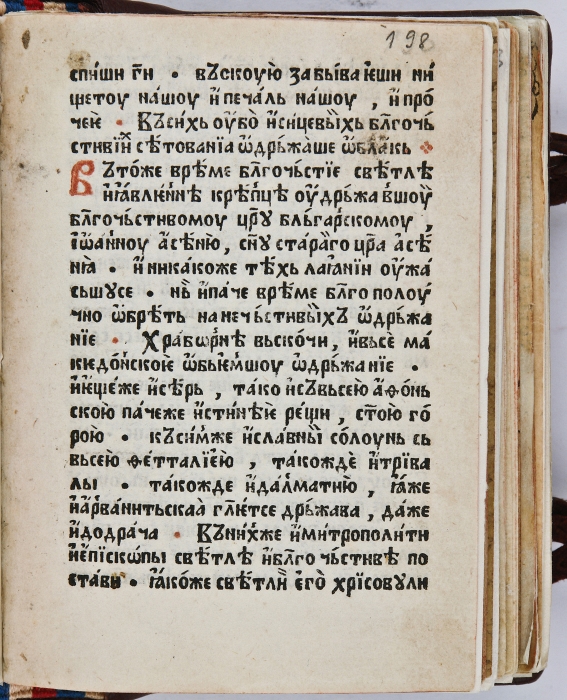 198
спи́ши гн҃и • въскоую забыва́ѥши ни
щетоу на́шоу и҆печа́ль на́шоу , и҆про́
чеѥ • Въси́хь оу҆бо̀ и҆си́цевыихь бл҃гочь
стивїиⷯ се́тованїа ѡ҆дръжаше ѡ҆блакь
Въто́же врѣ́ме бл҃гочь́стїе свѣ́тлѣ
и҆ꙗ҆влѥ́ннѣ крѣ́пцѣ оу҆дръжа́вшоу
бл҃гочь́стивомоу цр҃оу бльга́рскомоу ,
і҆ѡа́нноу а҆сѣ́ню , сн҃оу ста́раго цр҃а а҆сѣ́
нꙗ • и҆ ника́коже тѣ́хь лаꙗ́нїи оу҆жа́
сьшꙋсе • нь̀ и҆па́че врѣ́ме бл҃го полоу́
чно ѡ҆брѣ́ть на нечь́стивыихъ ѡ҆дръжа
нїе • Хра́бѡрнѣ выско́чи , и҆въсѐ ма
кидо́нскоѥ ѡ҆быѥ́мшоу ѡ҆дръжа́нїе •
и҆ѥще́же и҆сѣ́рь , та́ко и҆съвьсе́ю а҆ѳо́нь
скою па́чеже и҆́стинѣѥ рещи , ст҃ою го́
рою • къси́мже и҆сла́вныи со́лоунь сь
вьсе́ю ѳе́тталїѥ́ю , та́кождѐ и҆трїва
лы • та́кожде и҆да́лматию , ꙗ҆́же
и҆а҆рва́нитьскаа гл҃ѥтсе дрьжава , да́же
и҆додра́ча • Въни́хже и҆митропо́лити
и҆ѥ҆пі́скѡпы свѣ́тлѣ и҆бл҃гочь́стивѣ по
ста́ви • ꙗ҆ко́же свѣ́тли е҆го̀ хрїсовули